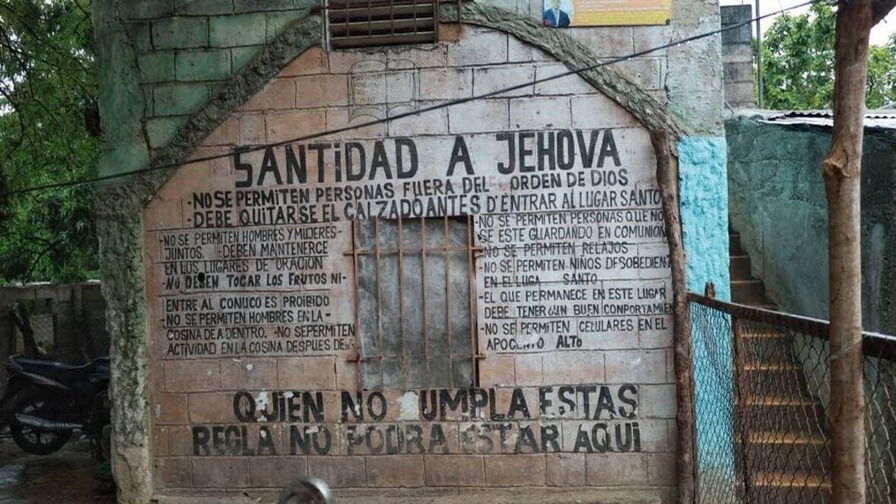 SANTIDAD A JEHOVA
-NO SE PERMITEN PERSONAS FUERA DEL ORDEN DE DIOS
-DEBE QUITARSE EL CALZADO ANTES D'ENTRAR AL LUGAR SANTO
-NO SE PERMITEN HOMBRES Y MUJERES-
JUNTOS. -DEBEN MANTENERCE
EN LOS LUGARES DE ORACION
-NO DEBEN TOCAR LOS FRUTOS NI-
ENTRE AL CONUCO ES PROIBIDO
-NO SE PERMITEN HOMBRES EN LA-
COSINA DE ADENTRO. -NO SEPERMITEN
ACTIVIDAD EN LA COSINA DESPUES DE
-NO SE PERMITEN PERSONAS QUE NO
SE ESTE GUARDANDO EN COMUNION
-NO SE PERMITEN RELAJOS
-NO SE PERMITEN NIÑOS DESOBEDIEN
EN EL LUGA SANTO
-EL QUE PERMANECE EN ESTE LUGAR
DEBE TENER UN BUEN COMPORTAMIEN
-NO SE PERMITEN CELULARES EN EL
ALTO
QUIEN NO UMPLA ESTAS
REGLA NO PODRA ESTAR AQUI